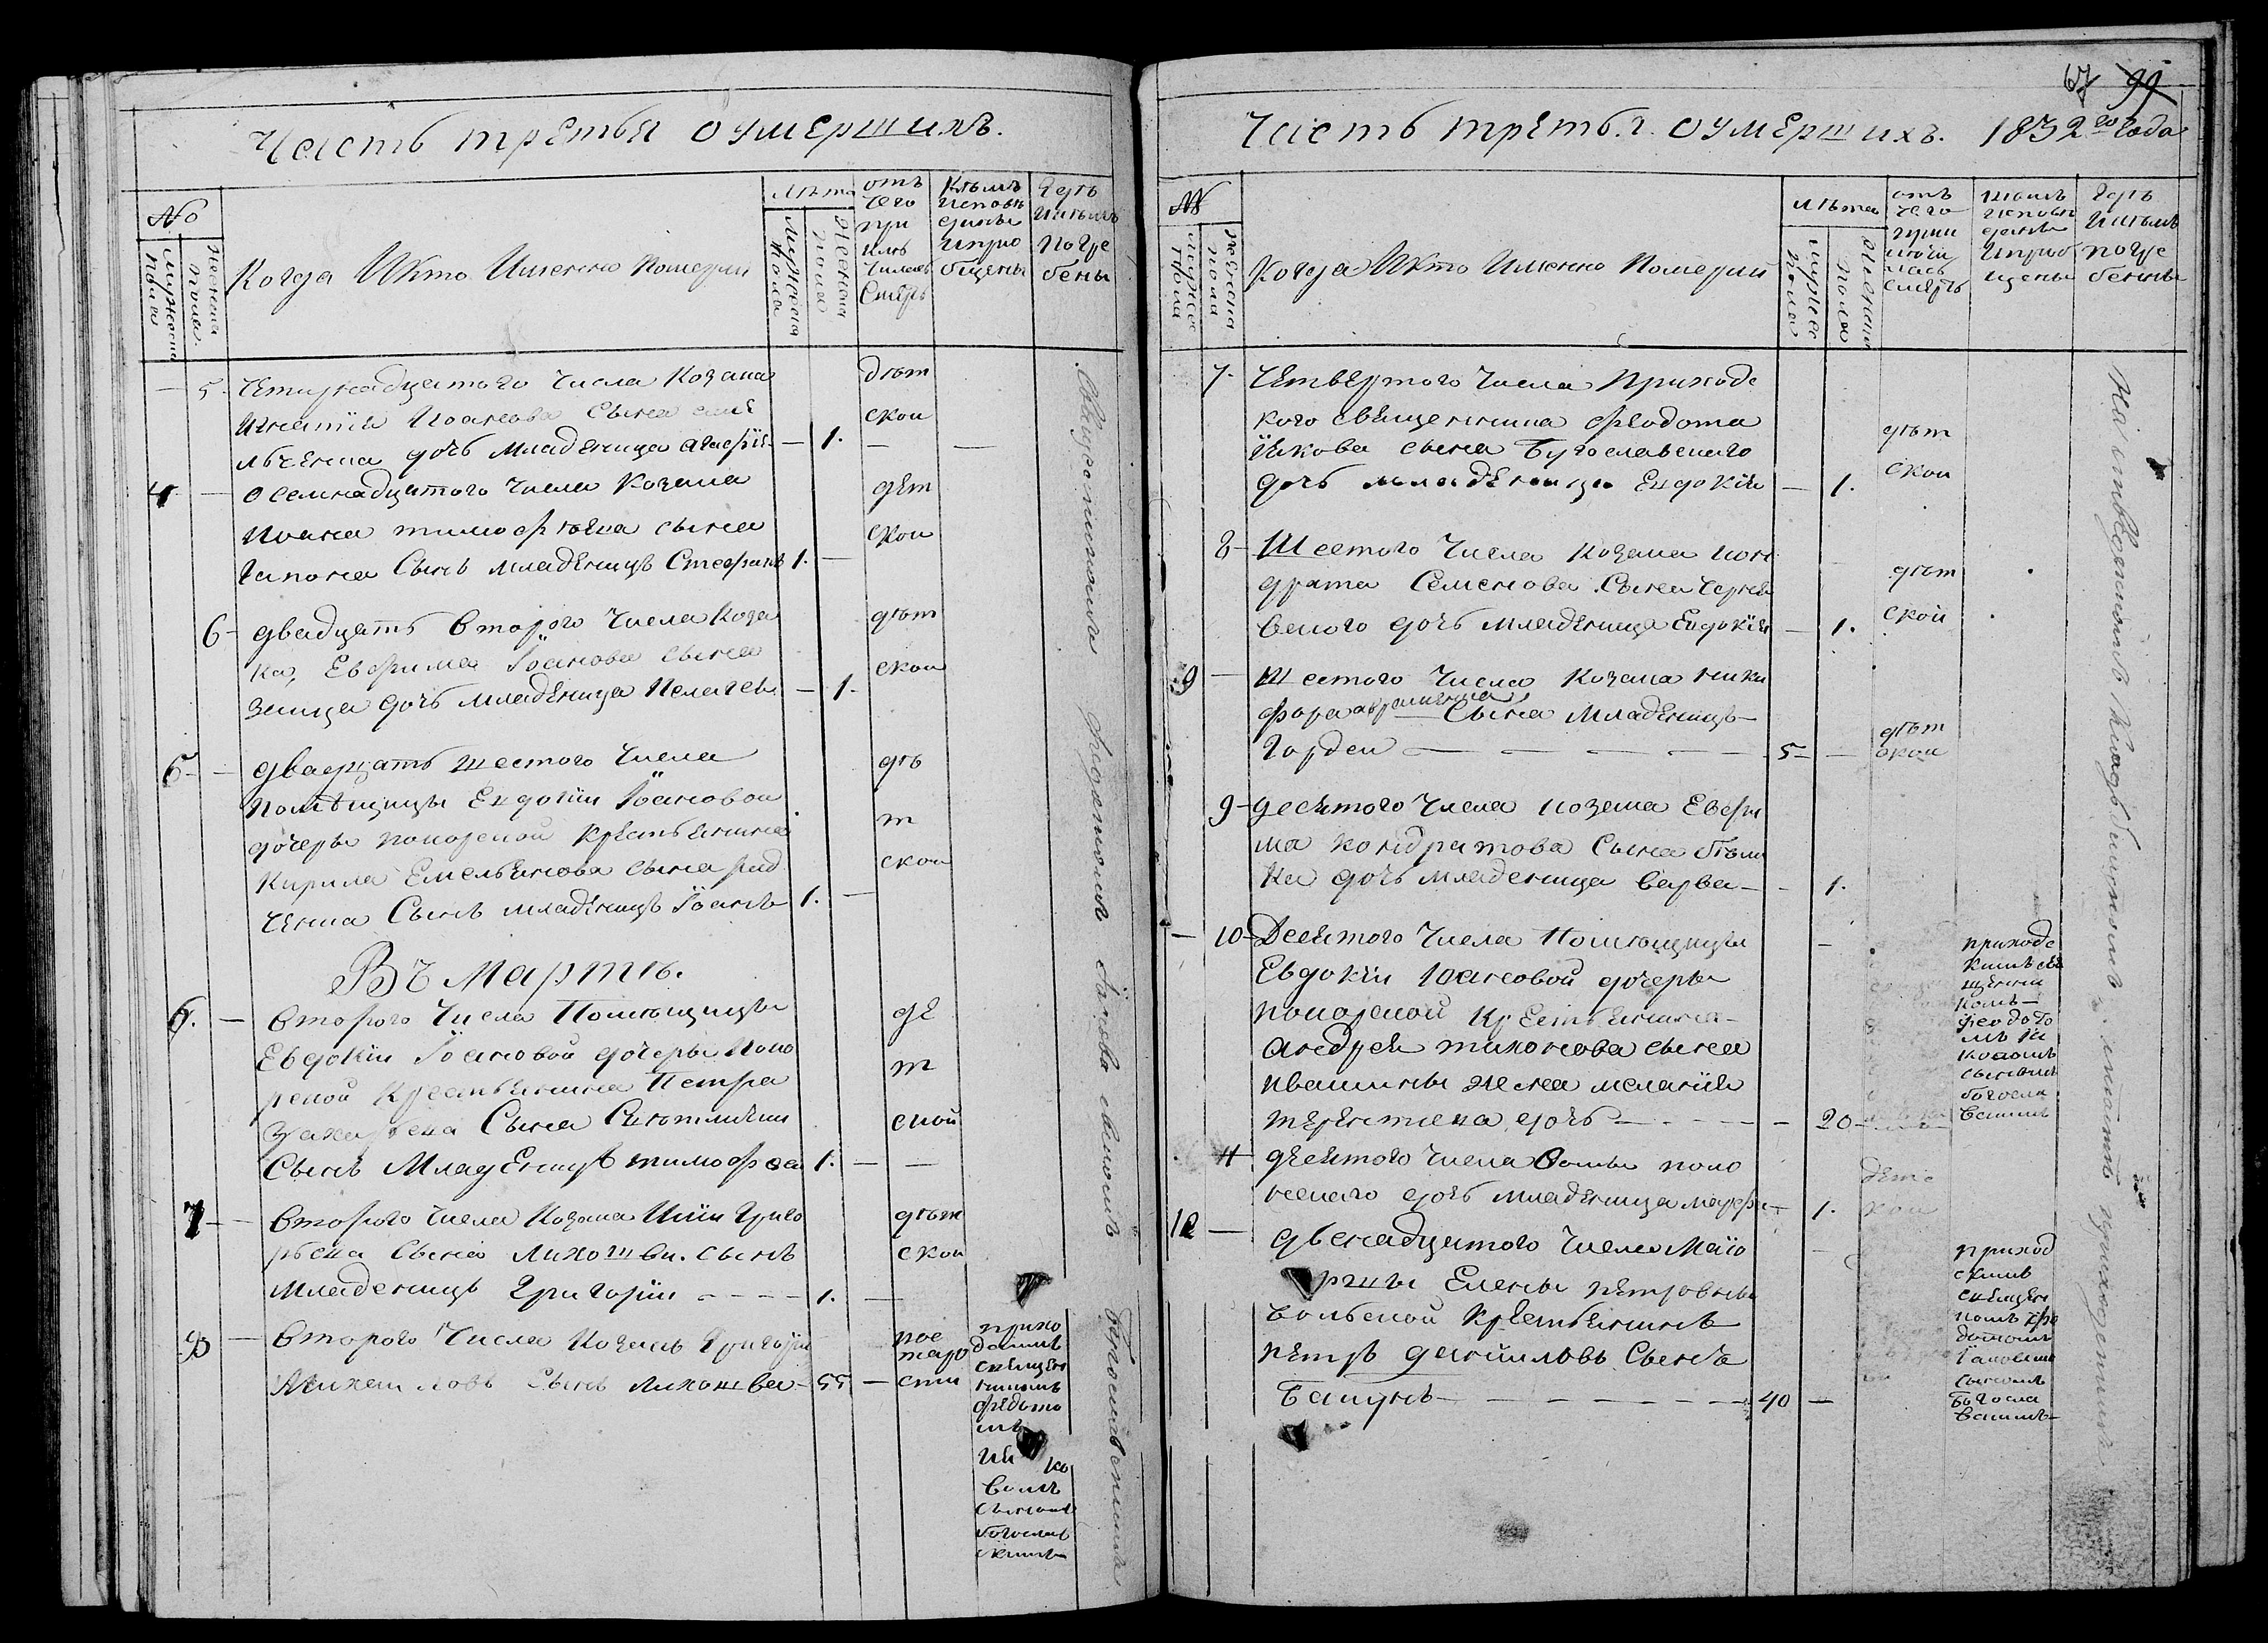 Часть третья оумершихъ.
№
Мужеска пола
Женска пола
Когда Икто Именно Померли
Лѣта
Мужеска пола
Женска пола
отъ
чего
при
Смерть
Кѣмъ
исповѣ
даны
иприо
бщены
Гдѣ
икѣмъ
погре
бены
5. Четырнадцатого Числа Козака
Игнатія Иоанова Сына
дочь Младеница Агафія — 1.
дѣт
ской
4 — Осемнадцатого Числа Козака
Ивана тимофѣева сына
Гапона Сынъ младеницъ Стефанъ 1. —
дет
ской
6 — двадцать второго Числа Коза
ка, Евфима Іоанова сына
Заица дочь младеница Пелагея — 1.
дѣт
ской
5 — двацать шестого Числа
помѣщицы Евдокіи Іоановой
дочеры покорской крестьянина
Кирила Емельянова сына Рад
ченка Сынъ младеницъ Іоанъ 1. —
дѣ
т
ской
Въ Мартѣ.
6. — второго Числа Помѣщицы
Евдокіи Іоановой дочеры поко
рской Крестьянина Петра
Захарьева Сына
Сынъ Младеницъ тимофѣй 1. —
дѣ
т
ской
7 — второго Числа Козака Григо
рьева Сына Лихошви. сынъ
Младеницъ Григорій 1. —
дѣт
ской
8 — второго Числа Козакъ Григорій
Михайловъ Сынъ Лихошва 55 —
старо
сти
прихо
дскимъ
священ
никомъ
Федото
мъ
Яко
влимъ
сыномъ
богослав
скимъ
Священникомъ Федотомъ Іаковлевимъ Богославскимъ
67 99
Часть третья. оумершихъ. 1832го года
№
Мужеска пола
Женска пола
Когда Икто Именно Померли
Лѣта
Мужеска пола
Женска пола
отъ
чего
приклю
чилась
смерть
кѣмъ
исповѣ
даны
иприоб
щены
Гдѣ
икѣмъ
погре
бенны
7. Четвертого Числа Приходс
кого священника Феодота
Якова сына Бугославского
дочь младеница Евдокія — 1.
дѣт
ской
8 — Шестого Числа Козака кон
драта Семенова Сына Черня
вского дочь младеница Евдокія — 1.
дѣт
ской
9 — Шестого Числа Козака Ники
фора Аврамиенка Сына Младеницъ
Гордей — 5 —
дѣт
ской
9 — десятого Числа козака Евфи
ма Кондратова Сына бѣли
ка дочь младеница варва — 1.
— 10 — Десятого Числа Помѣщицы
Евдокіи Іоановой дочеры
покорской Крестьянина
Андрея тихонова сына
ивашины жена меланія
терентиева дочь — 20
приходс
кимъ свя
щенни
комъ
феодото
мъ Яковл
сыномъ
богосла
вскимъ
11 десятого Числа Фомы поло
нского дочь младеница марфа — 1.
детс
кой
12 — двенадцатого Числа Маіо
рши Елены петровны
вольской Крестьянинъ
петръ даниловъ Сынъ
Бакунъ — 40 —
приход
скимъ
священ
никомъ Фео
дотомъ
Іаковли
сыномъ
Богосла
вскимъ
На приходскомъ Кладбищѣ